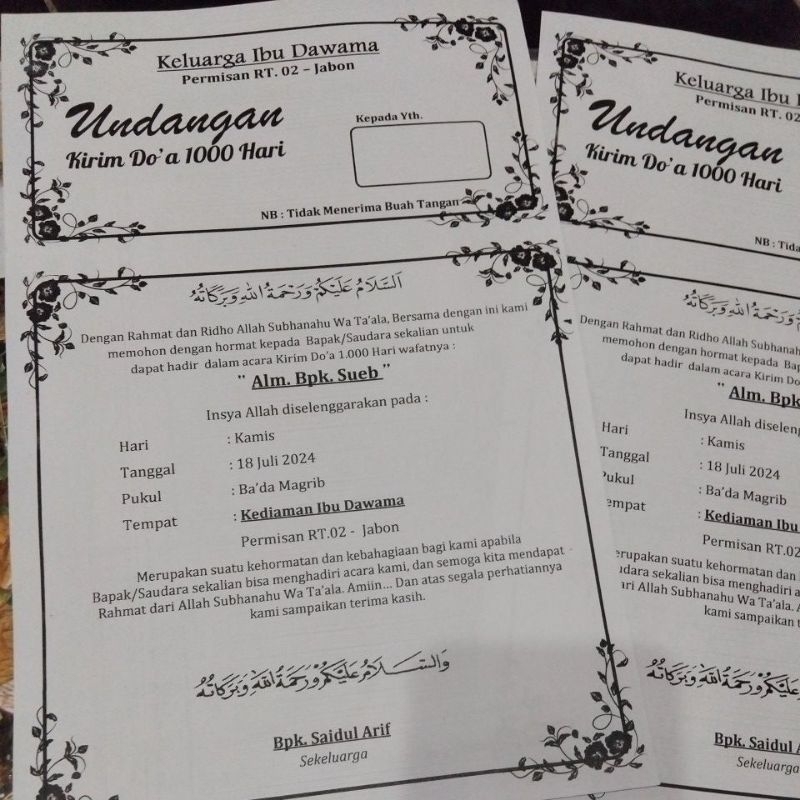 Keluarga Ibu Dawama
Permisan RT. 02 – Jabon
Undangan
Kirim Do'a 1000 Hari
Kepada Yth.
NB : Tidak Menerima Buah Tangan
اَلسَّلَامُ عَلَيْكُمْ وَرَحْمَةُ اللهِ وَبَرَكَاتُهُ
Dengan Rahmat dan Ridho Allah Subhanahu Wa Ta'ala, Bersama dengan ini kami
memohon dengan hormat kepada Bapak/Saudara sekalian untuk
dapat hadir dalam acara Kirim Do'a 1.000 Hari wafatnya :
" Alm. Bpk. Sueb "
Insya Allah diselenggarakan pada :
Hari : Kamis
Tanggal : 18 Juli 2024
Pukul : Ba'da Magrib
Tempat : Kediaman Ibu Dawama
Permisan RT.02 - Jabon
Merupakan suatu kehormatan dan kebahagiaan bagi kami apabila
Bapak/Saudara sekalian bisa menghadiri acara kami, dan semoga kita mendapat
Rahmat dari Allah Subhanahu Wa Ta'ala. Amiin... Dan atas segala perhatiannya
kami sampaikan terima kasih.
وَالسَّلَامُ عَلَيْكُمْ وَرَحْمَةُ اللهِ وَبَرَكَاتُهُ
Bpk. Saidul Arif
Sekeluarga
Keluarga Ibu
Permisan RT. 02
Undangan
Kirim Do'a 1000 Hari
NB : Tida
وَرَحْمَةُ اللهِ وَبَرَكَاتُهُ
Dengan Rahmat dan Ridho Allah Subhanah
memohon dengan hormat kepada Bap
dapat hadir dalam acara Kirim Do
" Alm. Bpk
Insya Allah diselen
Hari : Kamis
Tanggal : 18 Juli 2024
Pukul : Ba'da Magrib
Tempat : Kediaman Ibu
Permisan RT.0
erupakan suatu kehormatan dan
audara sekalian bisa menghadiri a
ari Allah Subhanahu Wa Ta'ala. A
kami sampaikan t
عَلَيْكُمْ وَرَحْمَةُ اللهِ وَبَرَكَاتُهُ
Bpk. Saidul A
Sekeluarga